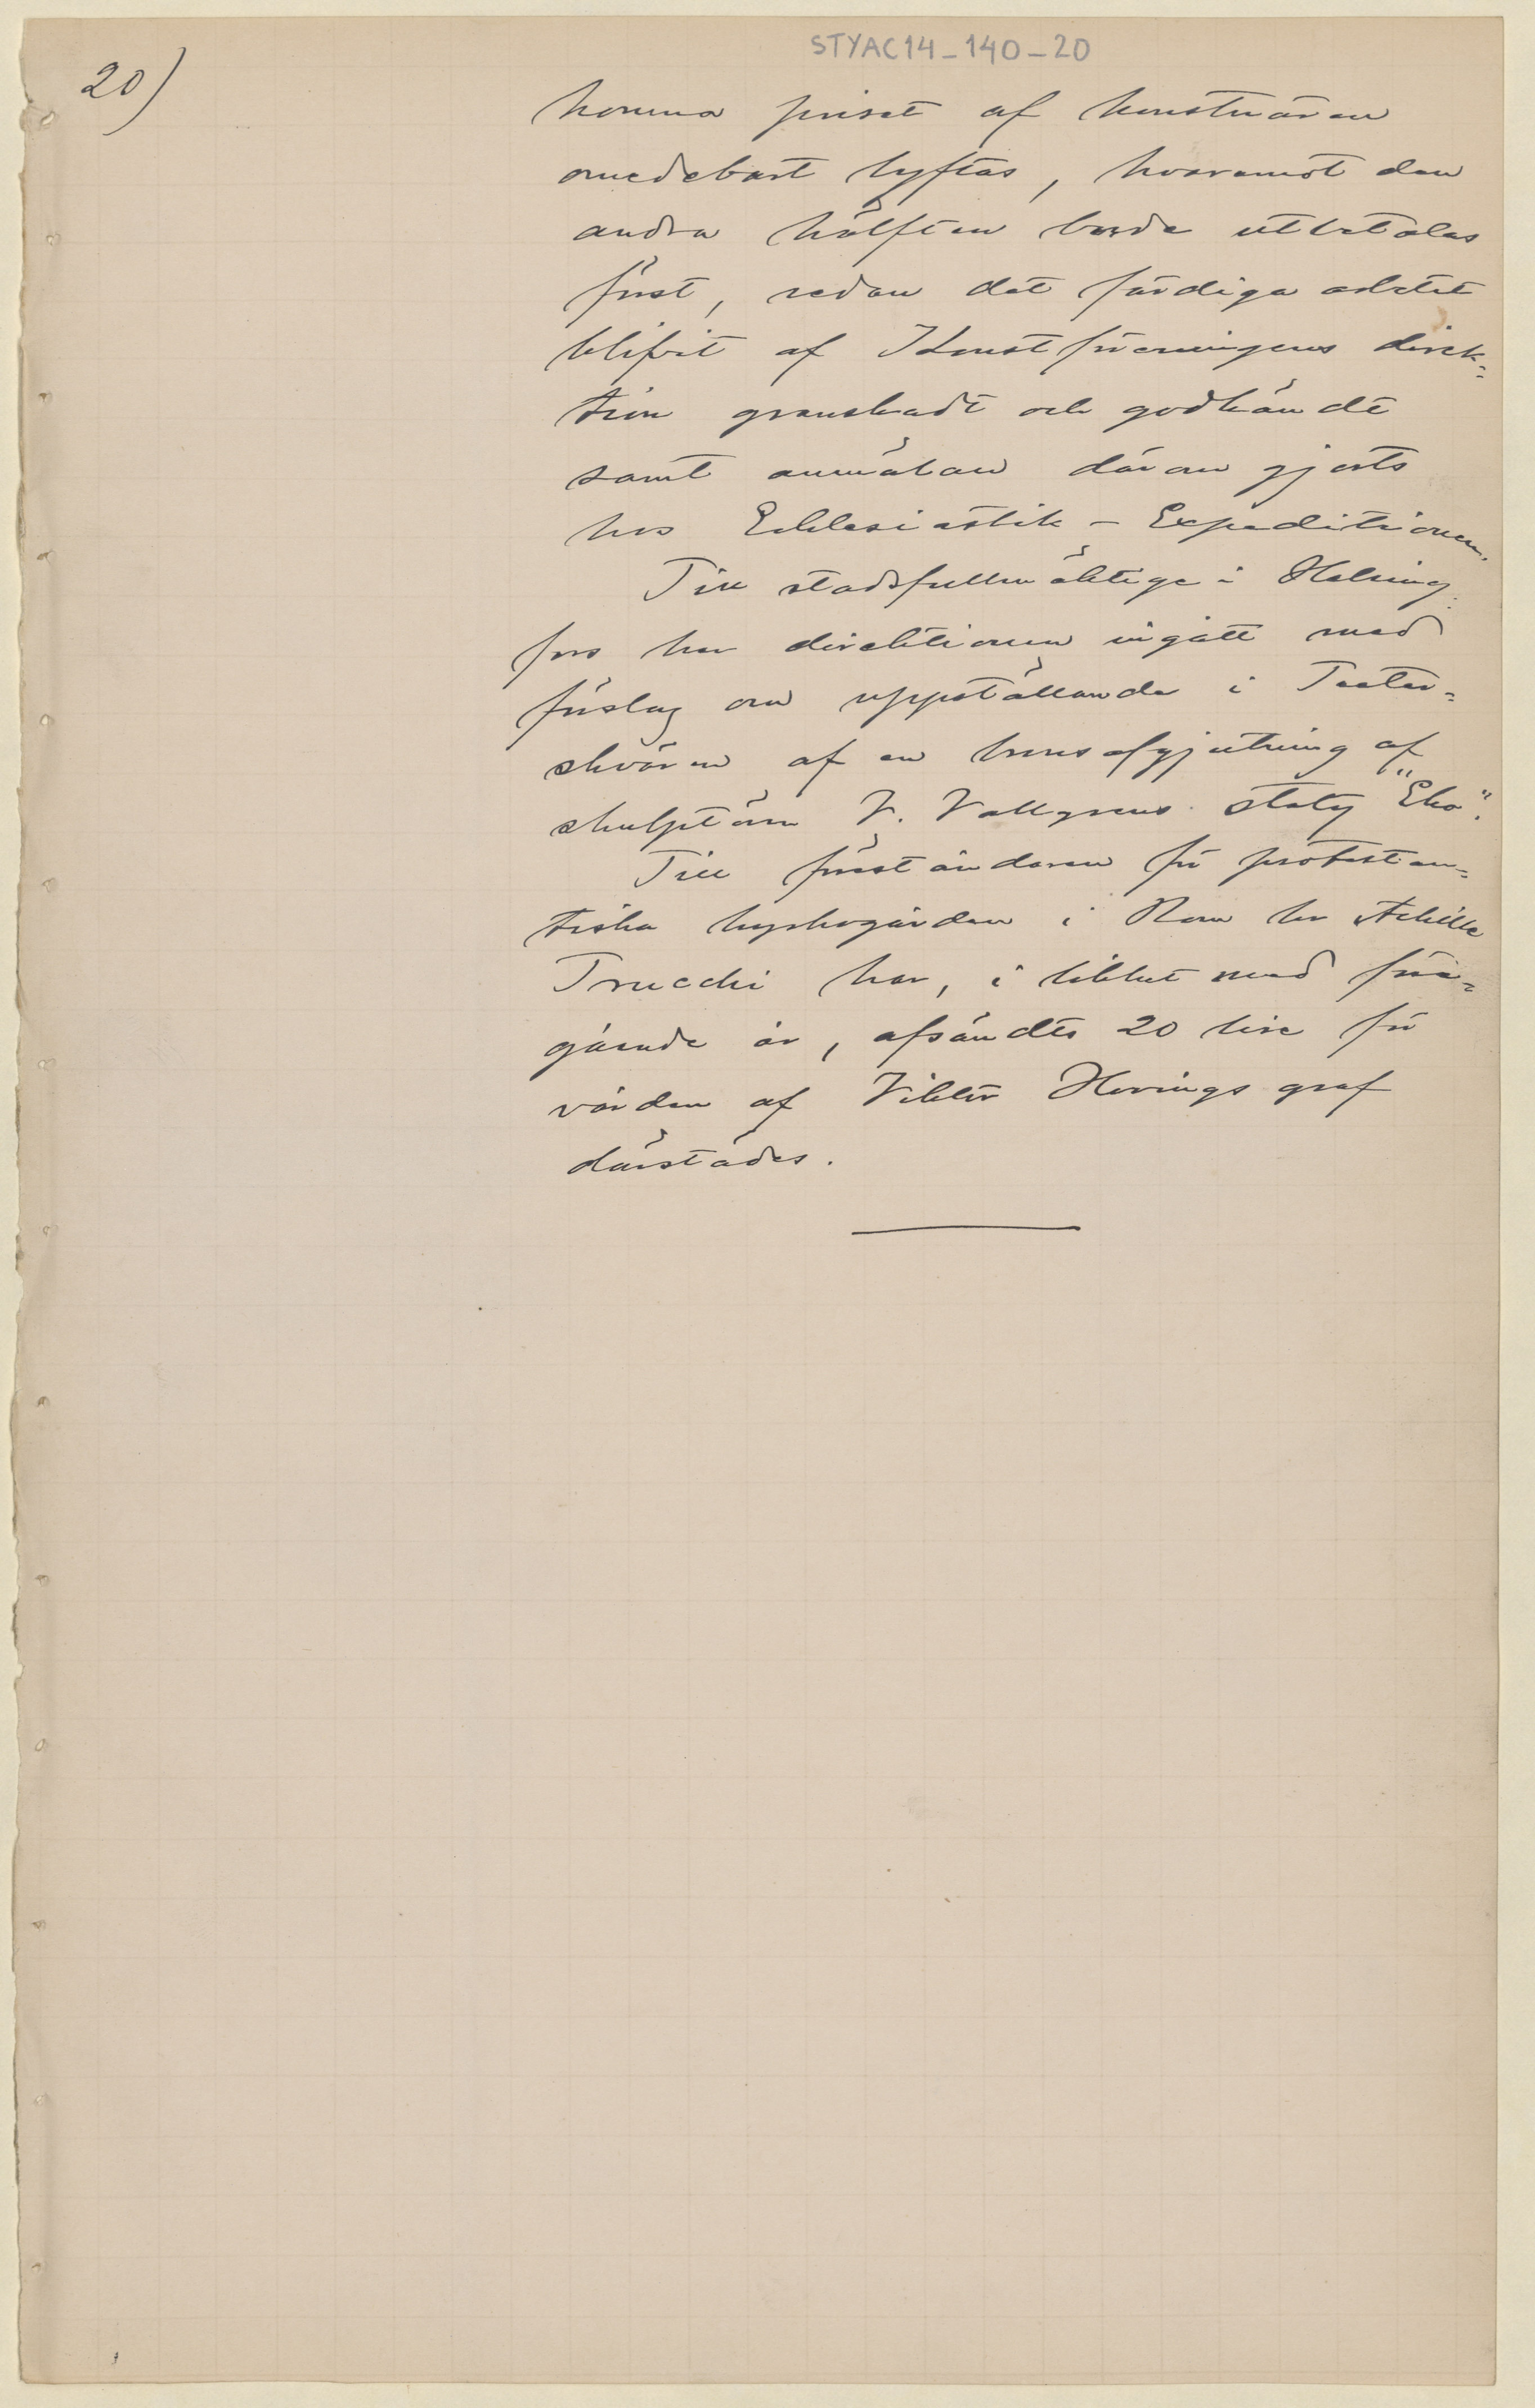 STYAC14-140-20
20)
komna priset af konstnären
omedelbart lyftas, hvaremot den
andra hälften borde utbetalas
först, sedan det färdiga arbetet
blifvit af Konstföreningens direk-
tion granskadt och godkändt
samt anmälan därom gjorts
hos Ecklesiastik - Expeditionen.
Till stadsfullmäktige i Helsing-
fors har direktionen ingått med
förslag om uppställande i Teater-
skvären af en bronsafgjutning af
skulptören V. Vallgrens staty "Eko".
Till föreståndaren för protestan-
tiska kyrkogården i Rom hr Achille
Trucchi har, i likhet med före-
gående år, afsändts 20 lire för
vården af Viktor Hovings graf
därstädes.